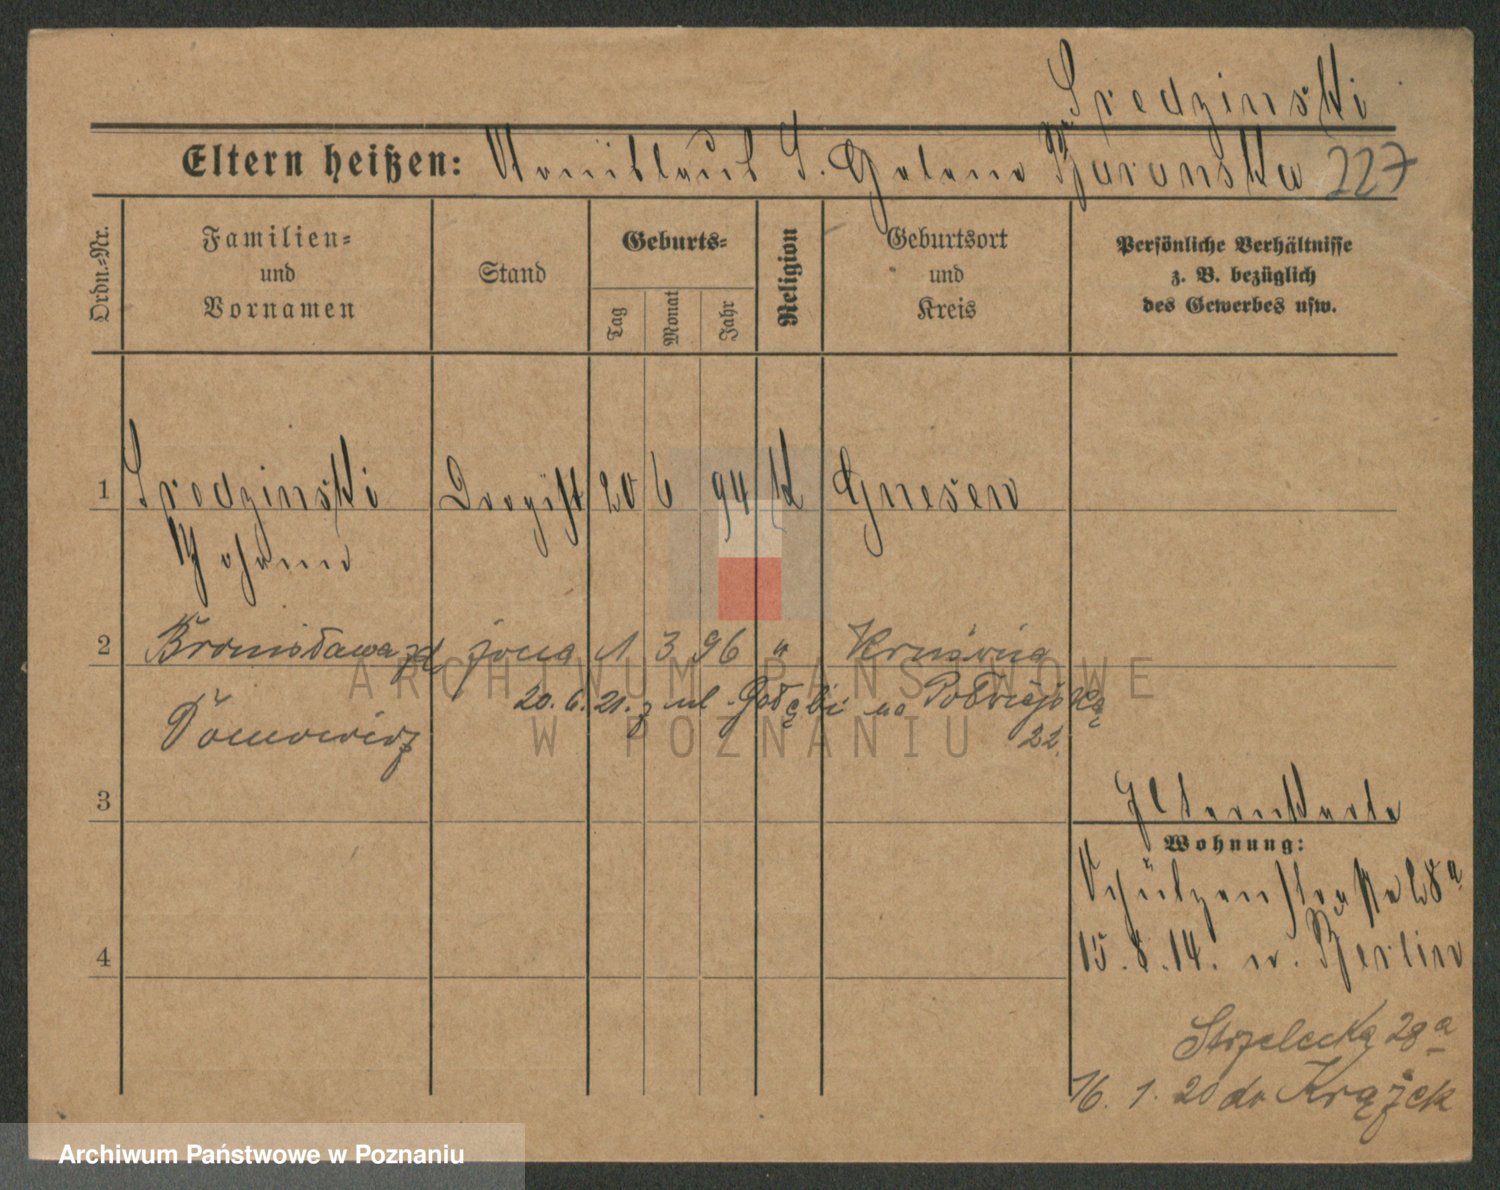 Sredzinski
Eltern heißen: Stanislaus S. Helene Baranska 227
Ordn.-Nr.
Familien-
und
Vornamen
Stand
Geburts-
Tag
Monat
Jahr
Religion
Geburtsort
und
Kreis
Persönliche Verhältnisse
z. B. bezüglich
des Gewerbes usw.
1 Sredzinski Drogist 20 6 94 k Gnesen
Johann
2 Bronisława żona 1 3 96 " Kruświca
20.6.21. z ul. Gołębi na Półwiejską
22.
3
Elternkarte
Wohnung:
Schützenstraße 28a
4
15.8.14. n. Berlin
Strzelecka 28a
16. 1. 20 do Krążek
ARCHIWUM PAŃSTWOWE
W POZNANIU
Archiwum Państwowe w Poznaniu